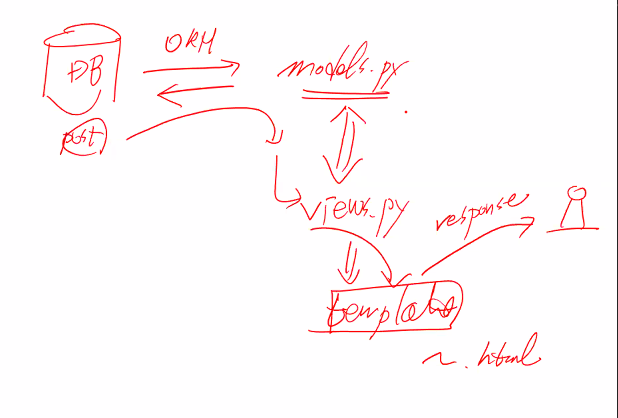 ORM
DB
models.py
post
views.py
response
template
~.html